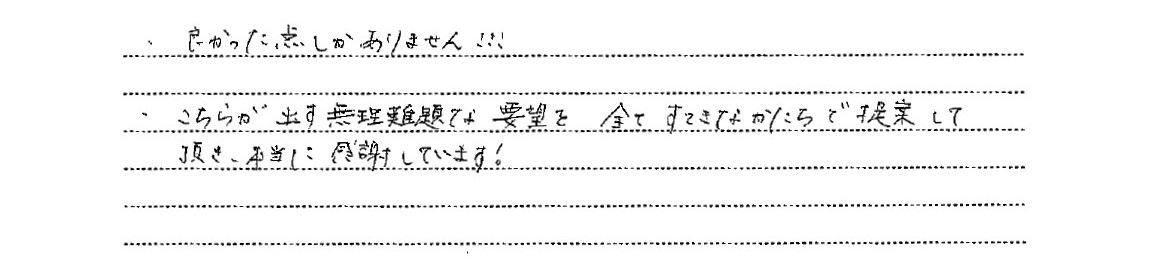 ・ 良かった点しかありません!!!
・ こちらが出す無理難題な要望を 全て すてきなかたちで提案して
頂き、本当に感謝しています!